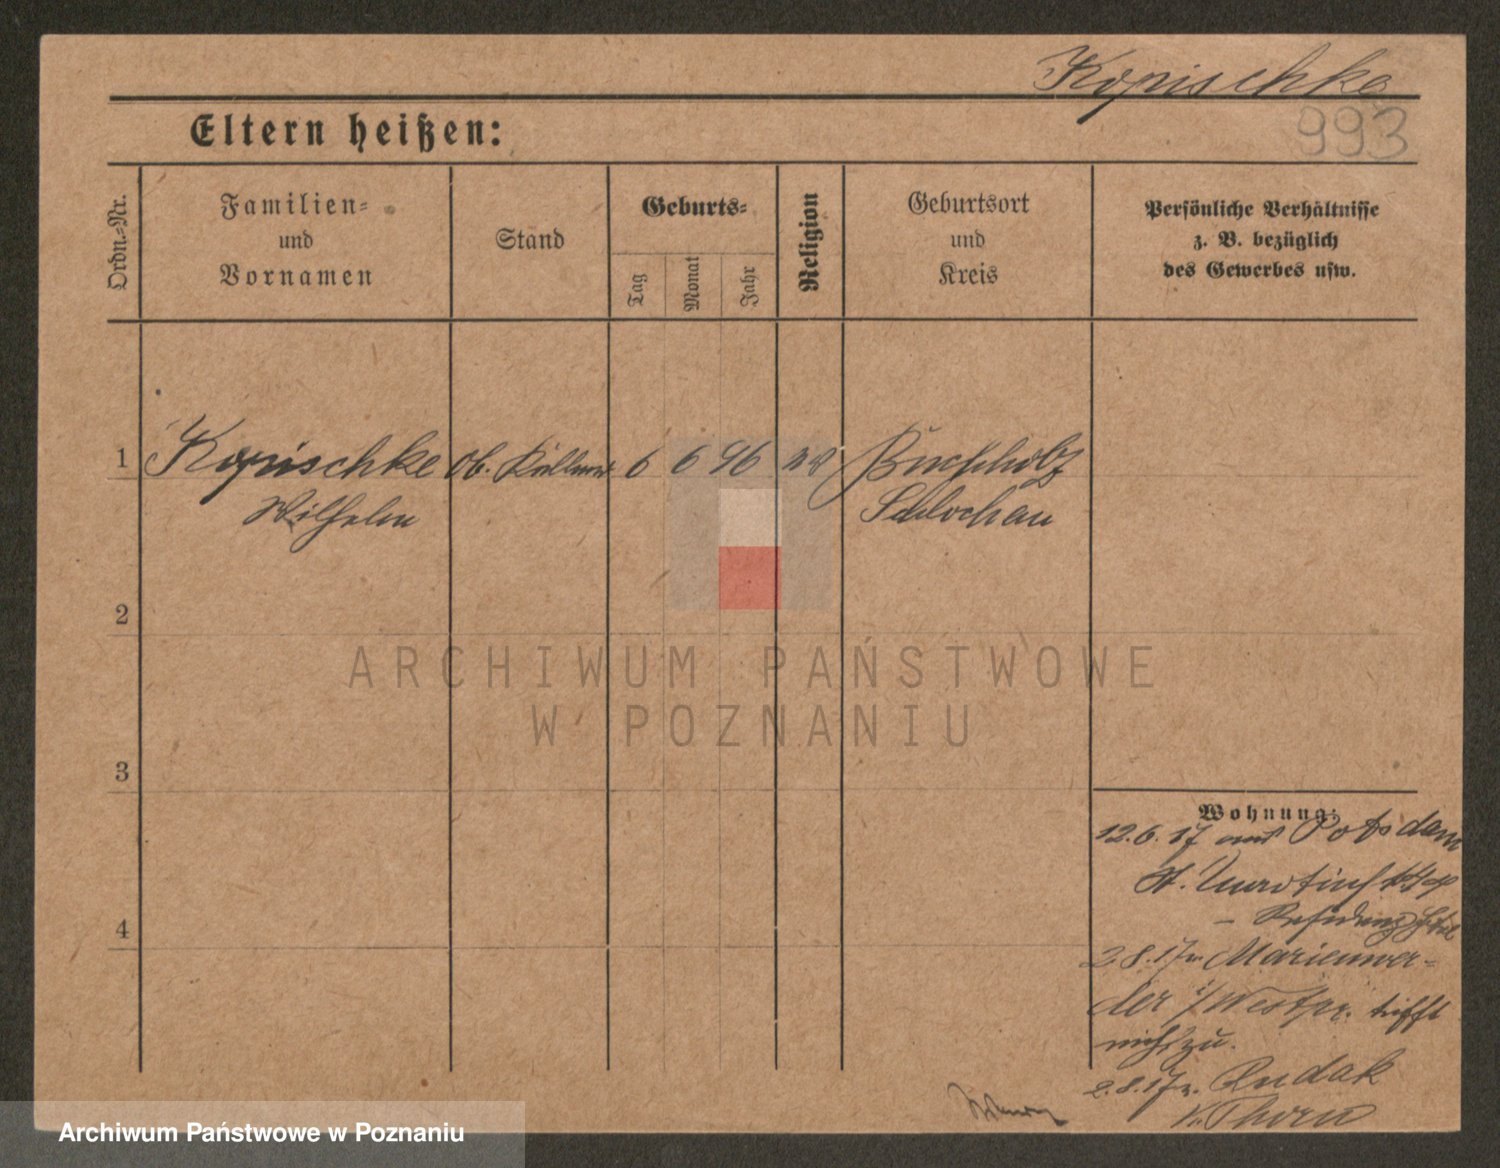 Kopischke
993
Eltern heißen:
Ordn.=Nr.
Familien=
und
Vornamen
Stand
Geburts=
Tag
Monat
Jahr
Religion
Geburtsort
und
Kreis
Persönliche Verhältnisse
z. B. bezüglich
des Gewerbes usw.
1 Kopischke Ob. Kellner 6 6 96 Buchholz
Wilhelm Schlochau
2
3
4
Wohnung:
12.6.17 Potsdam
2.8.17 Marienwer-
der i/Westpr. trifft
nicht zu.
2.8.17 Rudak
Thorn
ARCHIWUM PAŃSTWOWE
W POZNANIU
Archiwum Państwowe w Poznaniu